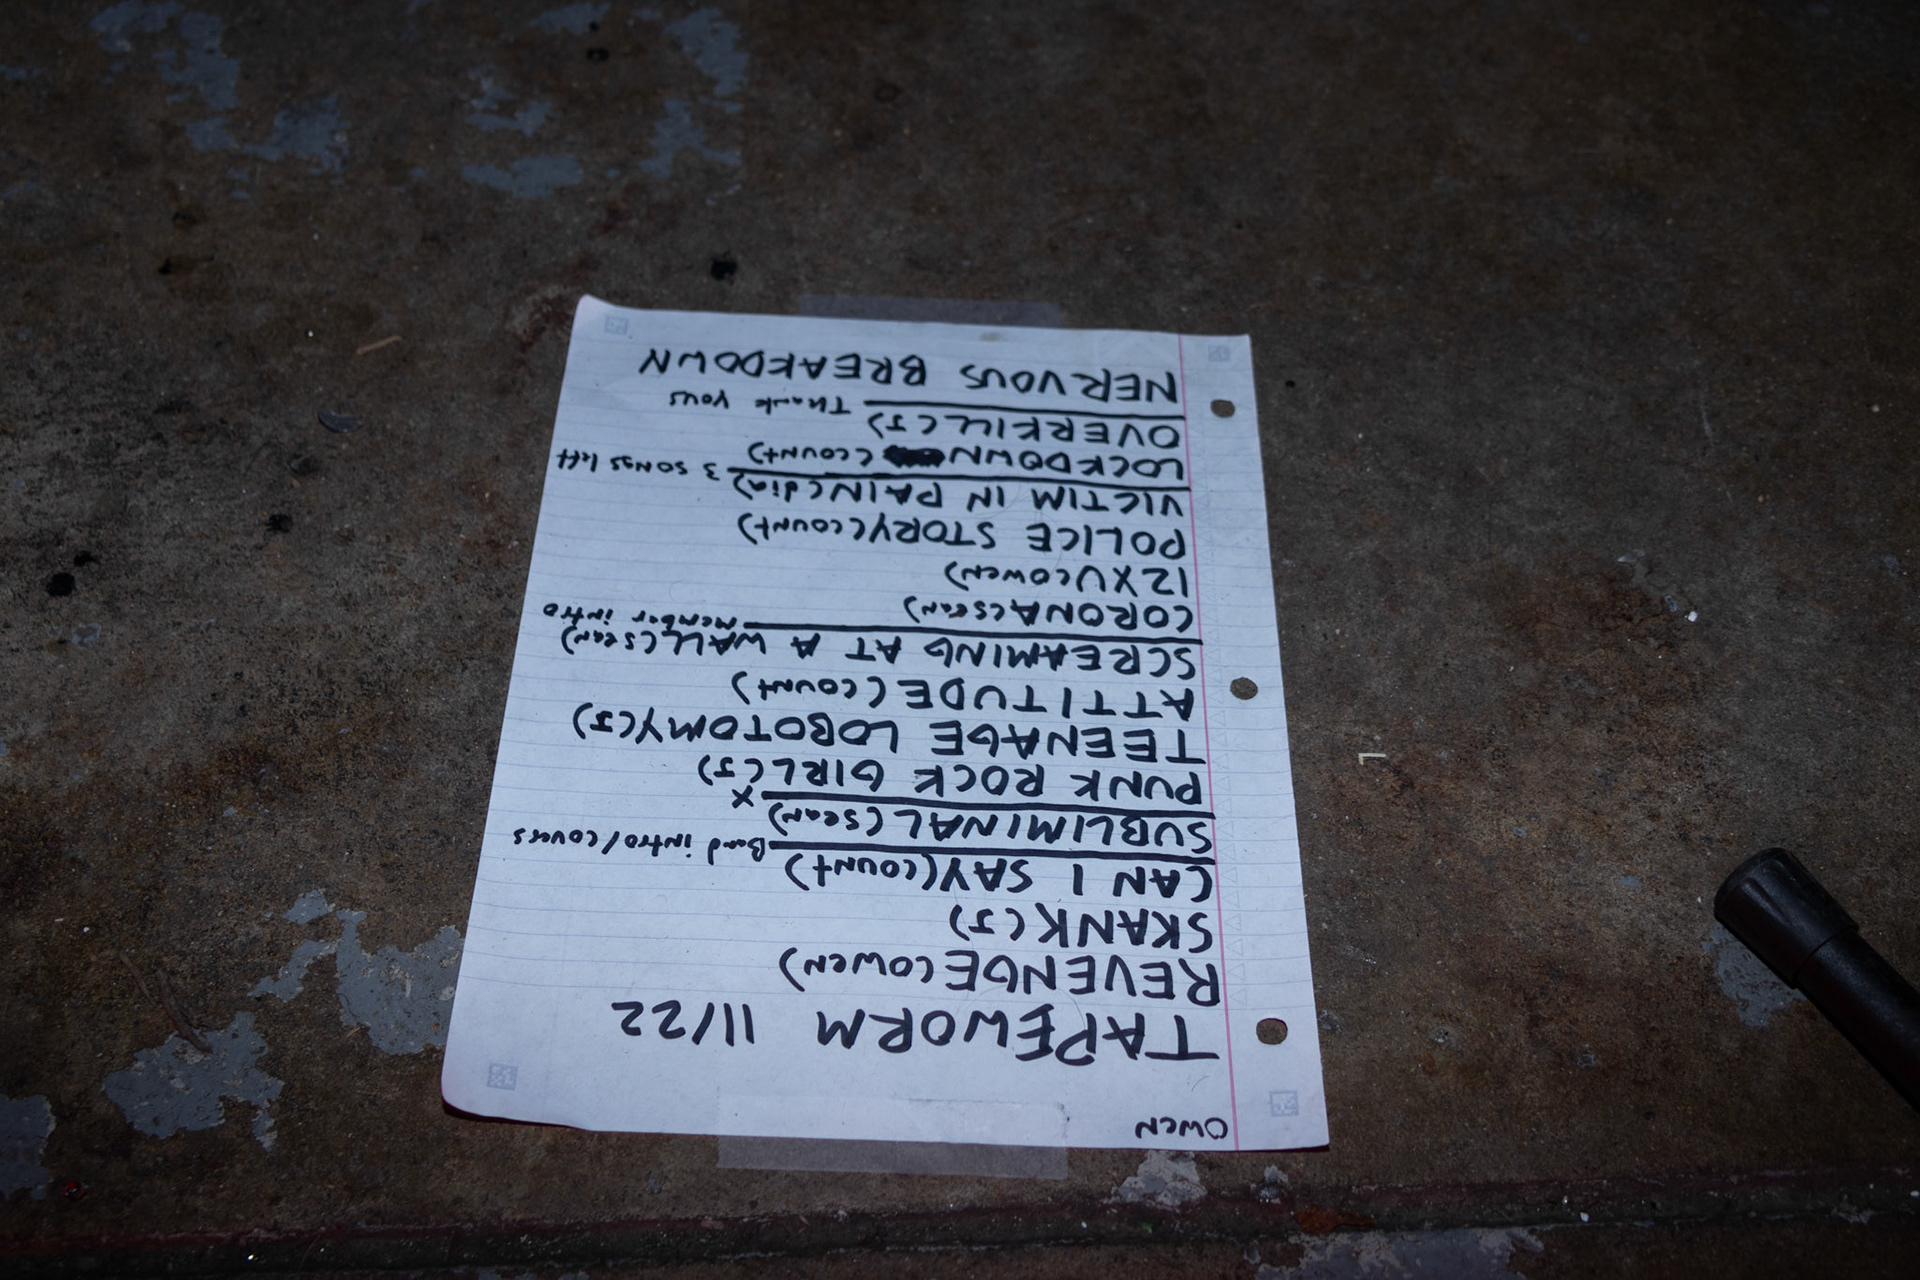 OWEN
TAPEWORM 11/22
REVENGE(OWEN)
SKANK(J)
CAN I SAY(COUNT)
Band intro/covers
SUBLIMINAL(sean)
X
PUNK ROCK GIRL(J)
TEENAGE LOBOTOMY(J)
ATTITUDE(COUNT)
SCREAMING AT A WALL(sean)
Member intro
CORONA(sean)
12XU(OWEN)
POLICE STORY(COUNT)
VICTIM IN PAIN(dia)
3 songs left
LOCKDOWN (COUNT)
OVERKILL(J)
Thank yous
NERVOUS BREAKDOWN